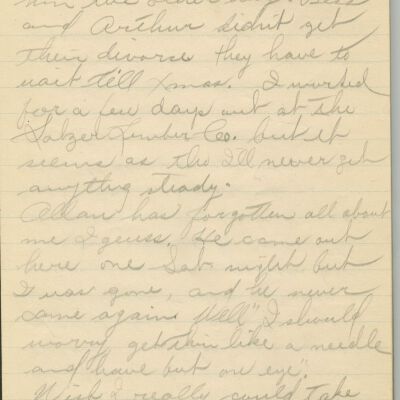 him the other day. Bess
and Arthur didn't get
their divorse they have to
wait till Xmas. I worked
for a few days out at the
Salzer Lumber Co. but it
seems as tho I'll never get
anything steady.
Allan has forgotten all about
me I guess. He came out
here one Sat. night but
I was gone, and he never
came again. Well "I should
worry get thin like a needle
and have but on eye".
Wish I really could take